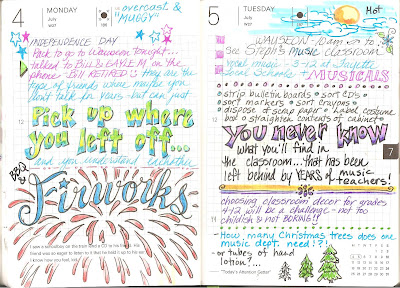 4 MONDAY
July
overcast & "MUGGY"
INDEPENDENCE DAY
Pack to go to Wauseon tonight...
talked to Bill & GAYLE M on the
phone. Bill RETIRED :) they are the
type of friends where maybe you
don't talk in years but can just
Pick up where
you left off...
and you understand eachother
BBQ
Firworks
I saw a schoolboy on the train lend a CD to his friend. His
friend was so eager to listen to it that he held it up to his ear.
5 TUESDAY
July
Hot
WAUSEON - 10am to
See STEPH'S MUSIC CLASSROOM
vocal music - 3-12 at Fayette
Local Schools + MUSICALS
strip bulletin boards • sort CDs
sort markers • sort crayons
dispose of scrap paper • label costume
box • straighten contents of cabinet
You never know
what you'll find in
the classroom...that has been
left behind by YEARS of music
teachers!
7
choosing classroom decor for grades
4-12 will be a challenge - not too
childish & not BORING!!
How many Christmas trees does one
music dept. need?!?!
or tubes of hand
lotion?...
"Today's Afternoon Game"